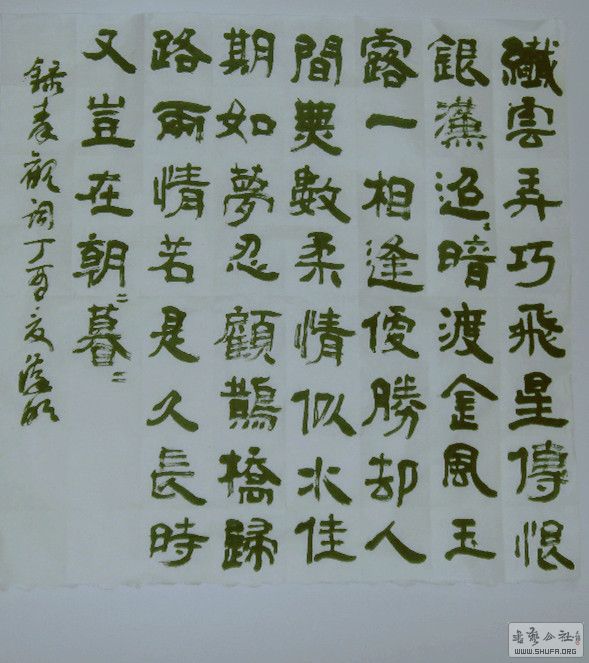 纖雲弄巧飛星傳恨
銀漢迢〻暗渡金風玉
露一相逢便勝却人
間無數柔情似水佳
期如夢忍顧鵲橋歸
路兩情若是久長時
又豈在朝〻暮〻
錄秦觀詞丁酉夏
書藝公社
WWW.SHUFA.ORG